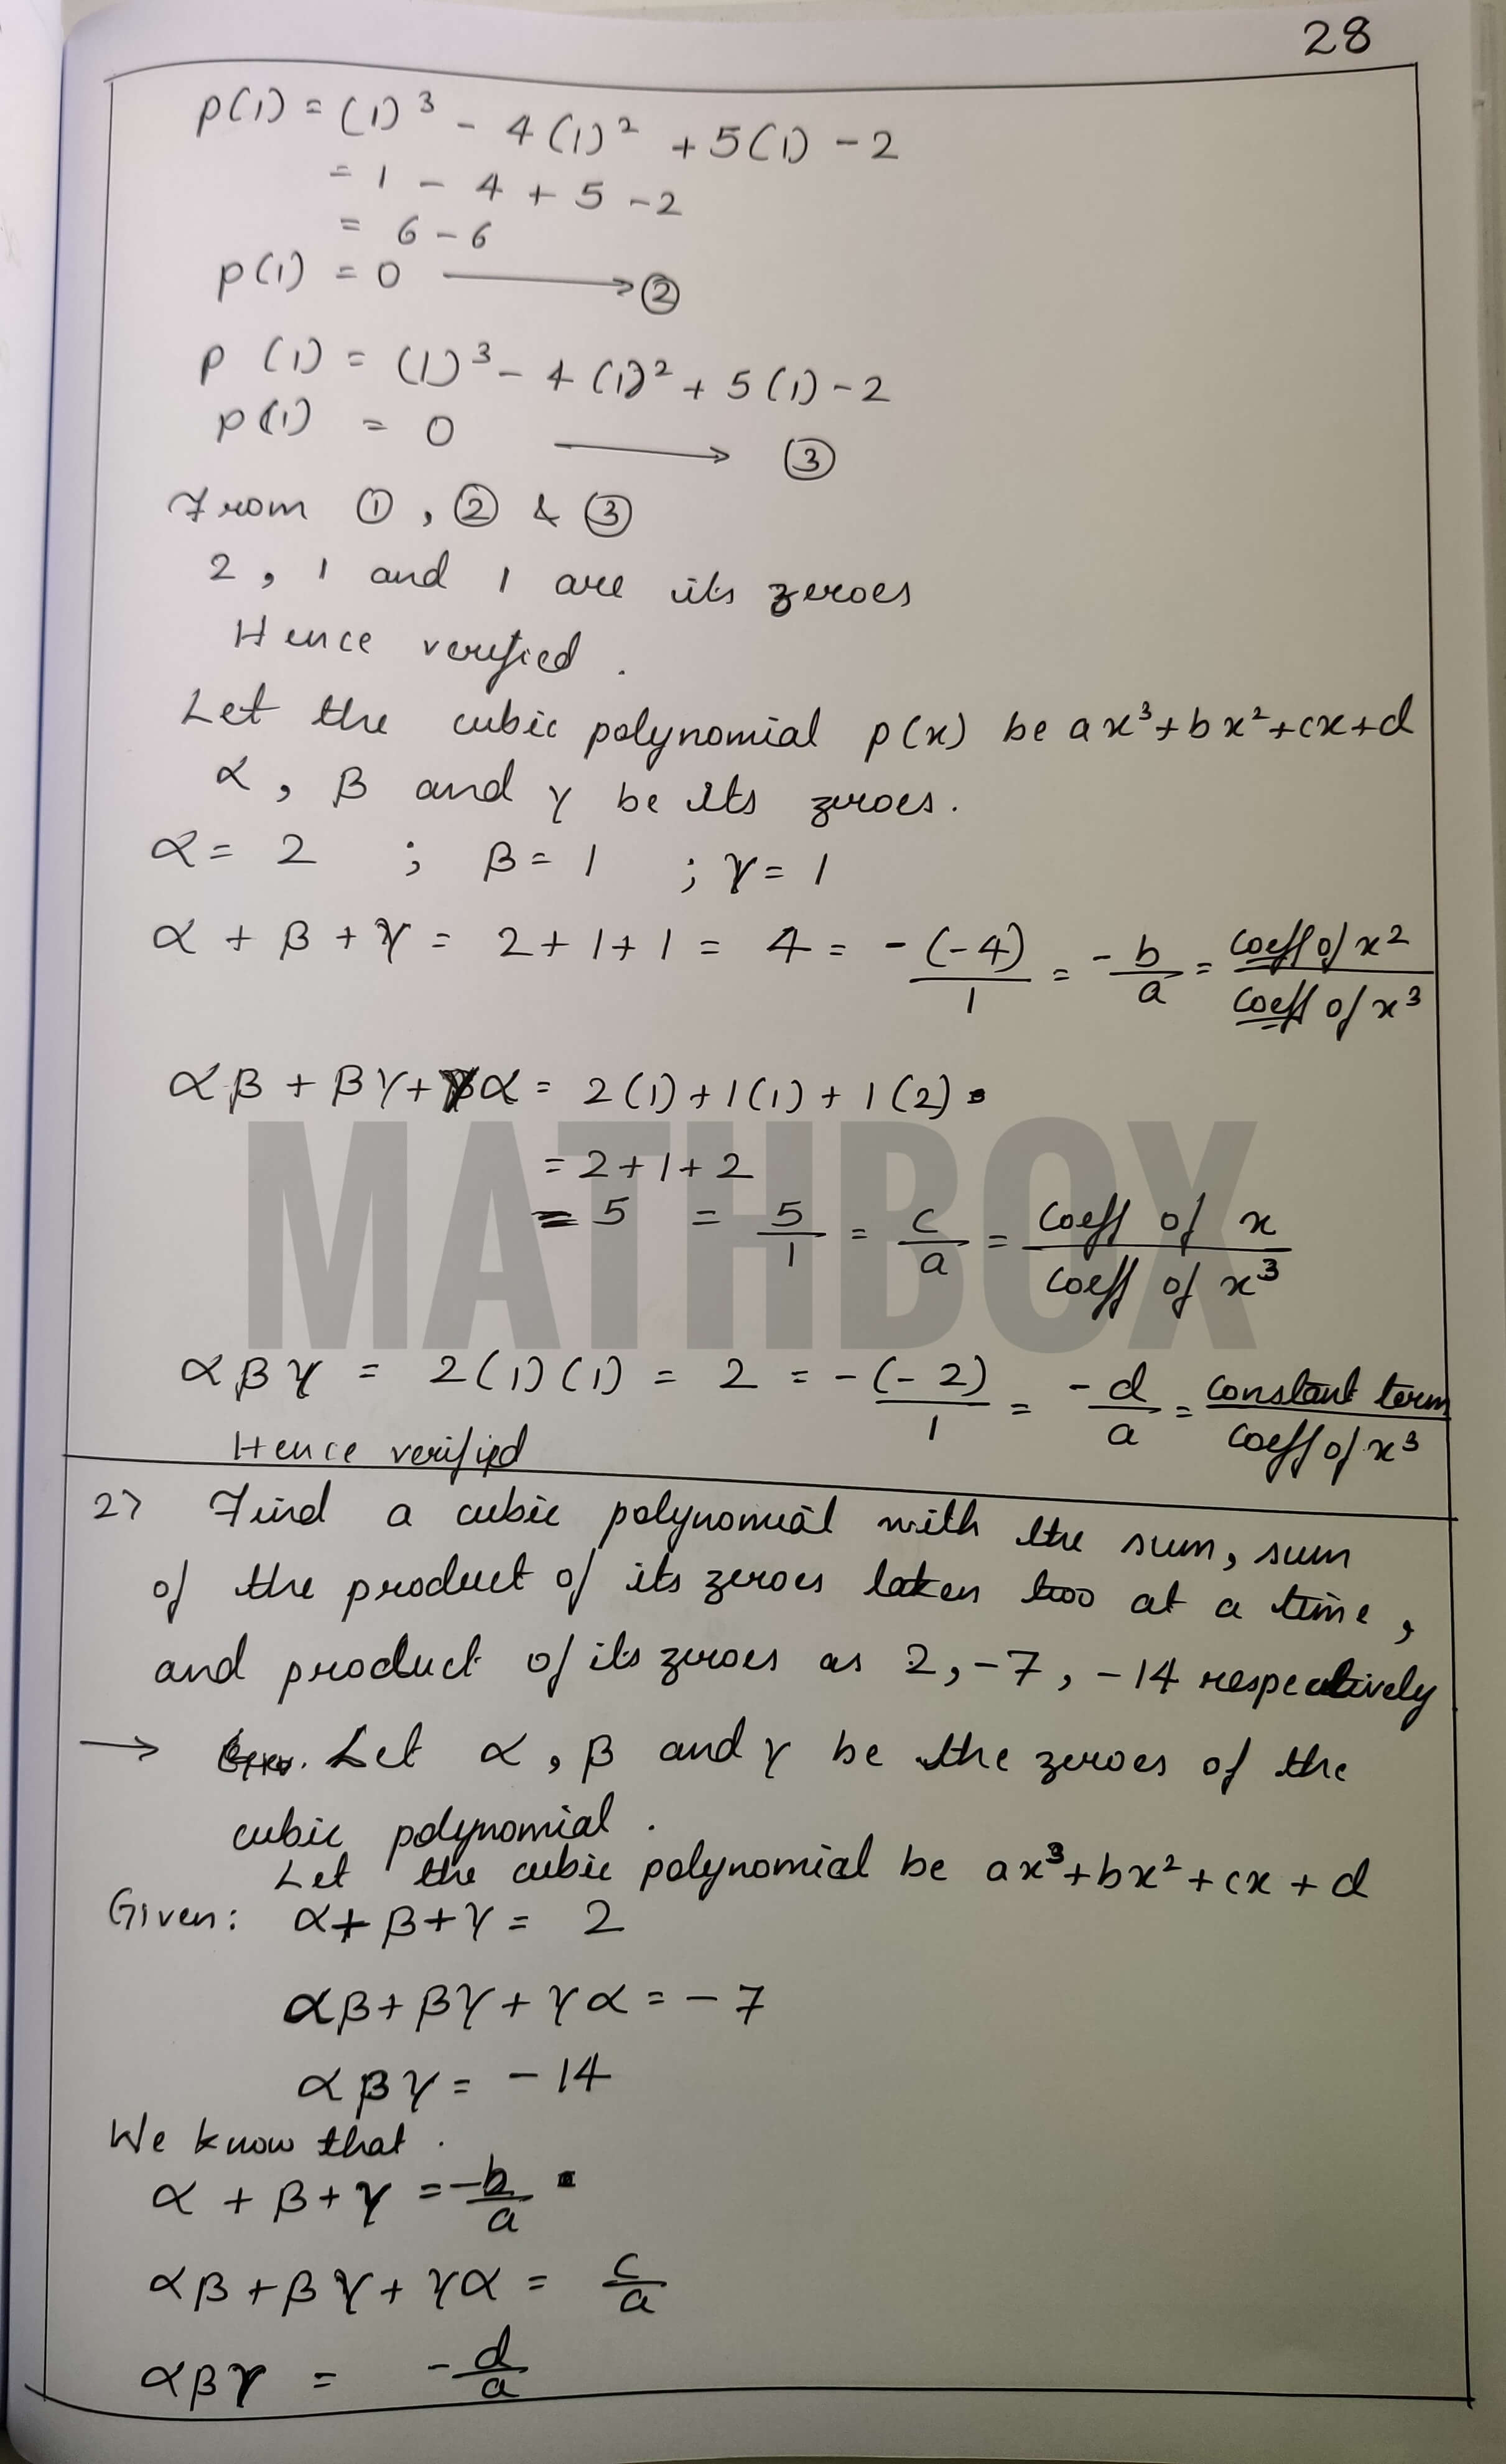 28
p(1) = (1)³ - 4(1)² + 5(1) - 2
= 1 - 4 + 5 - 2
= 6 - 6
p(1) = 0 → ②
p (1) = (1)³ - 4(1)² + 5(1) - 2
p(1) = 0 → ③
From ①, ② & ③
2, 1 and 1 are its zeroes
Hence verified.
Let the cubic polynomial p(x) be ax³+bx²+cx+d
α, β and γ be its zeroes.
α = 2 ; β = 1 ; γ = 1
α + β + γ = 2+1+1 = 4 = -(-4)/1 = -b/a = coeff of x²/coeff of x³
αβ + βγ + γα = 2(1) + 1(1) + 1(2)
= 2+1+2
= 5 = 5/1 = c/a = coeff of x/coeff of x³
MATHBOX
αβγ = 2(1)(1) = 2 = -(-2)/1 = -d/a = constant term/coeff of x³
Hence verified
2> Find a cubic polynomial with the sum, sum
of the product of its zeroes taken two at a time,
and product of its zeroes as 2, -7, -14 respectively
→ Let α, β and γ be the zeroes of the
cubic polynomial.
Let the cubic polynomial be ax³+bx²+cx+d
Given: α+β+γ = 2
αβ+βγ+γα = -7
αβγ = -14
We know that.
α + β + γ = -b/a
αβ+βγ+γα = c/a
αβγ = -d/a